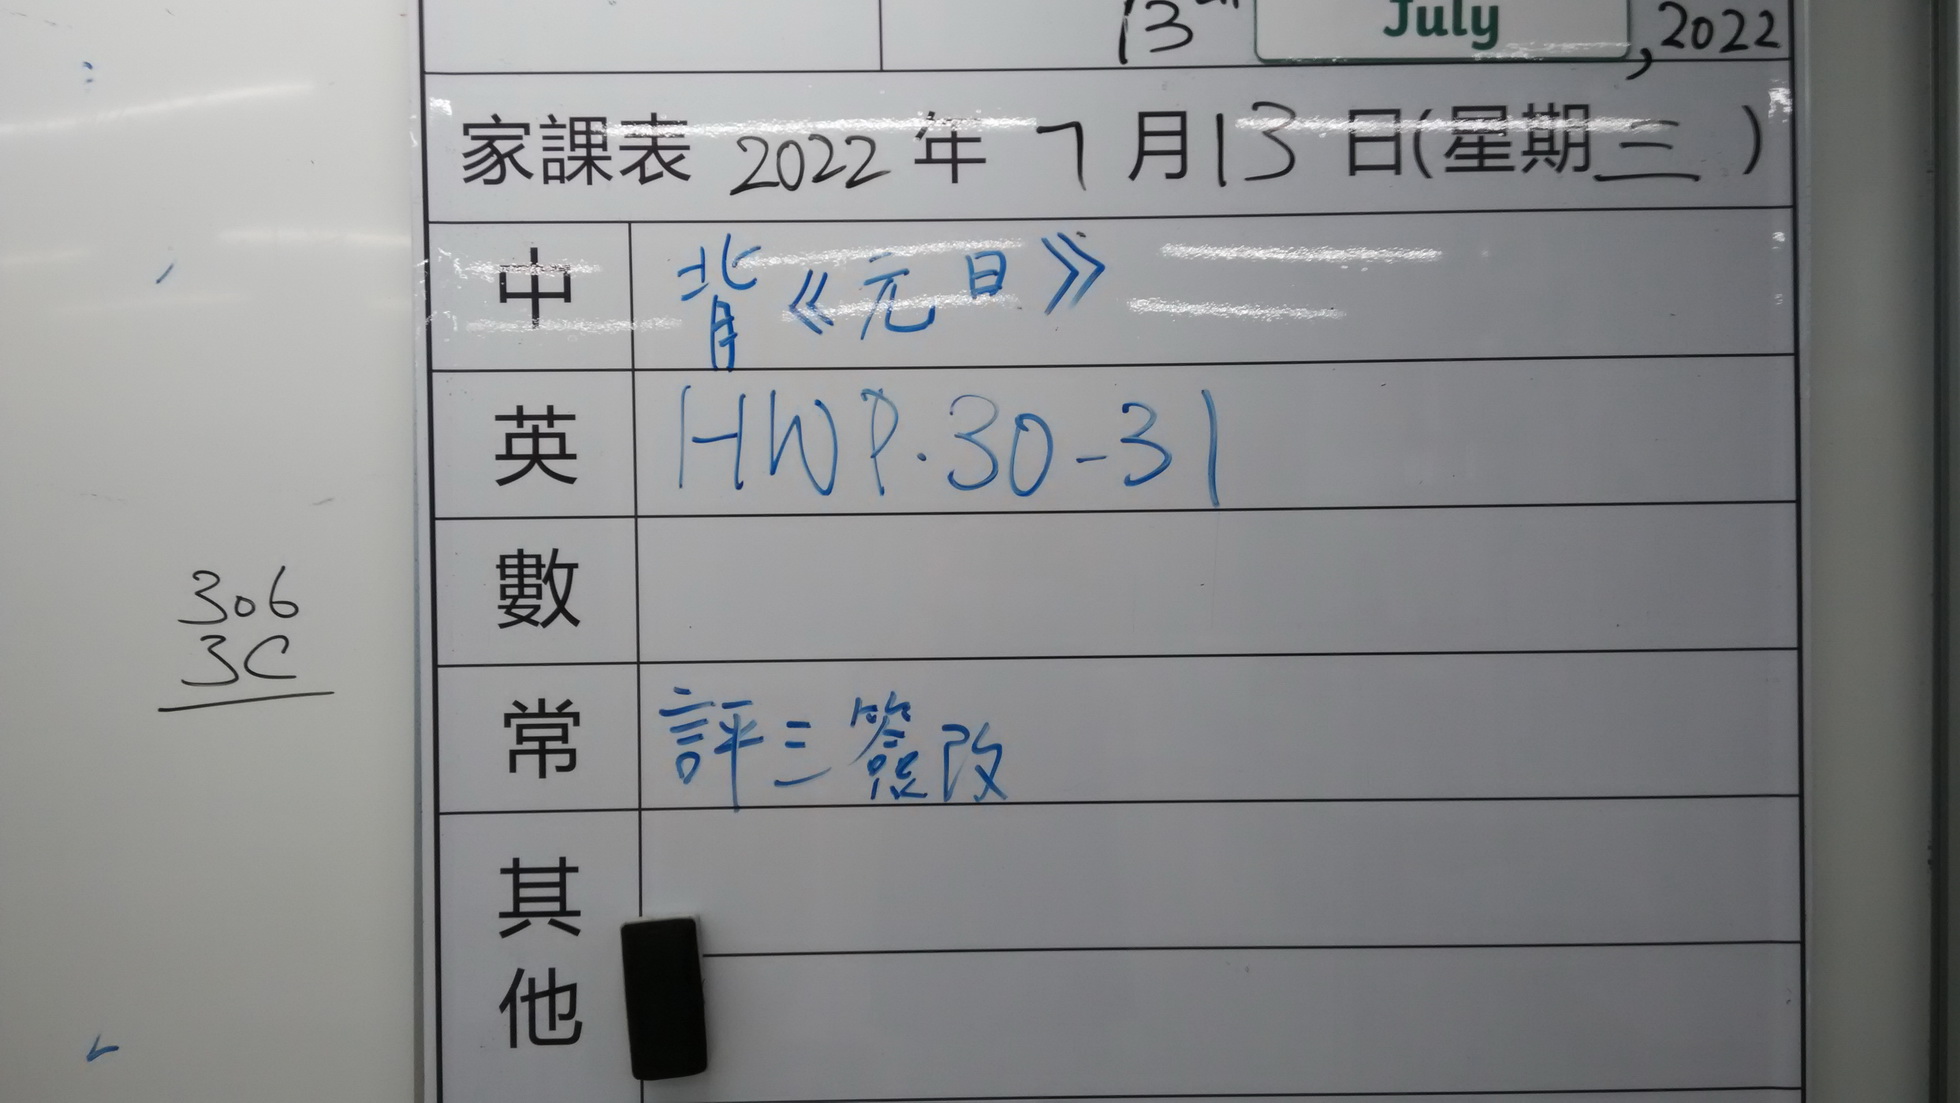 13th July, 2022
家課表 2022 年 7 月 13 日(星期三)
中 背《元日》
英 HW P.30-31
數
常 評三簽改
其他
306
3C